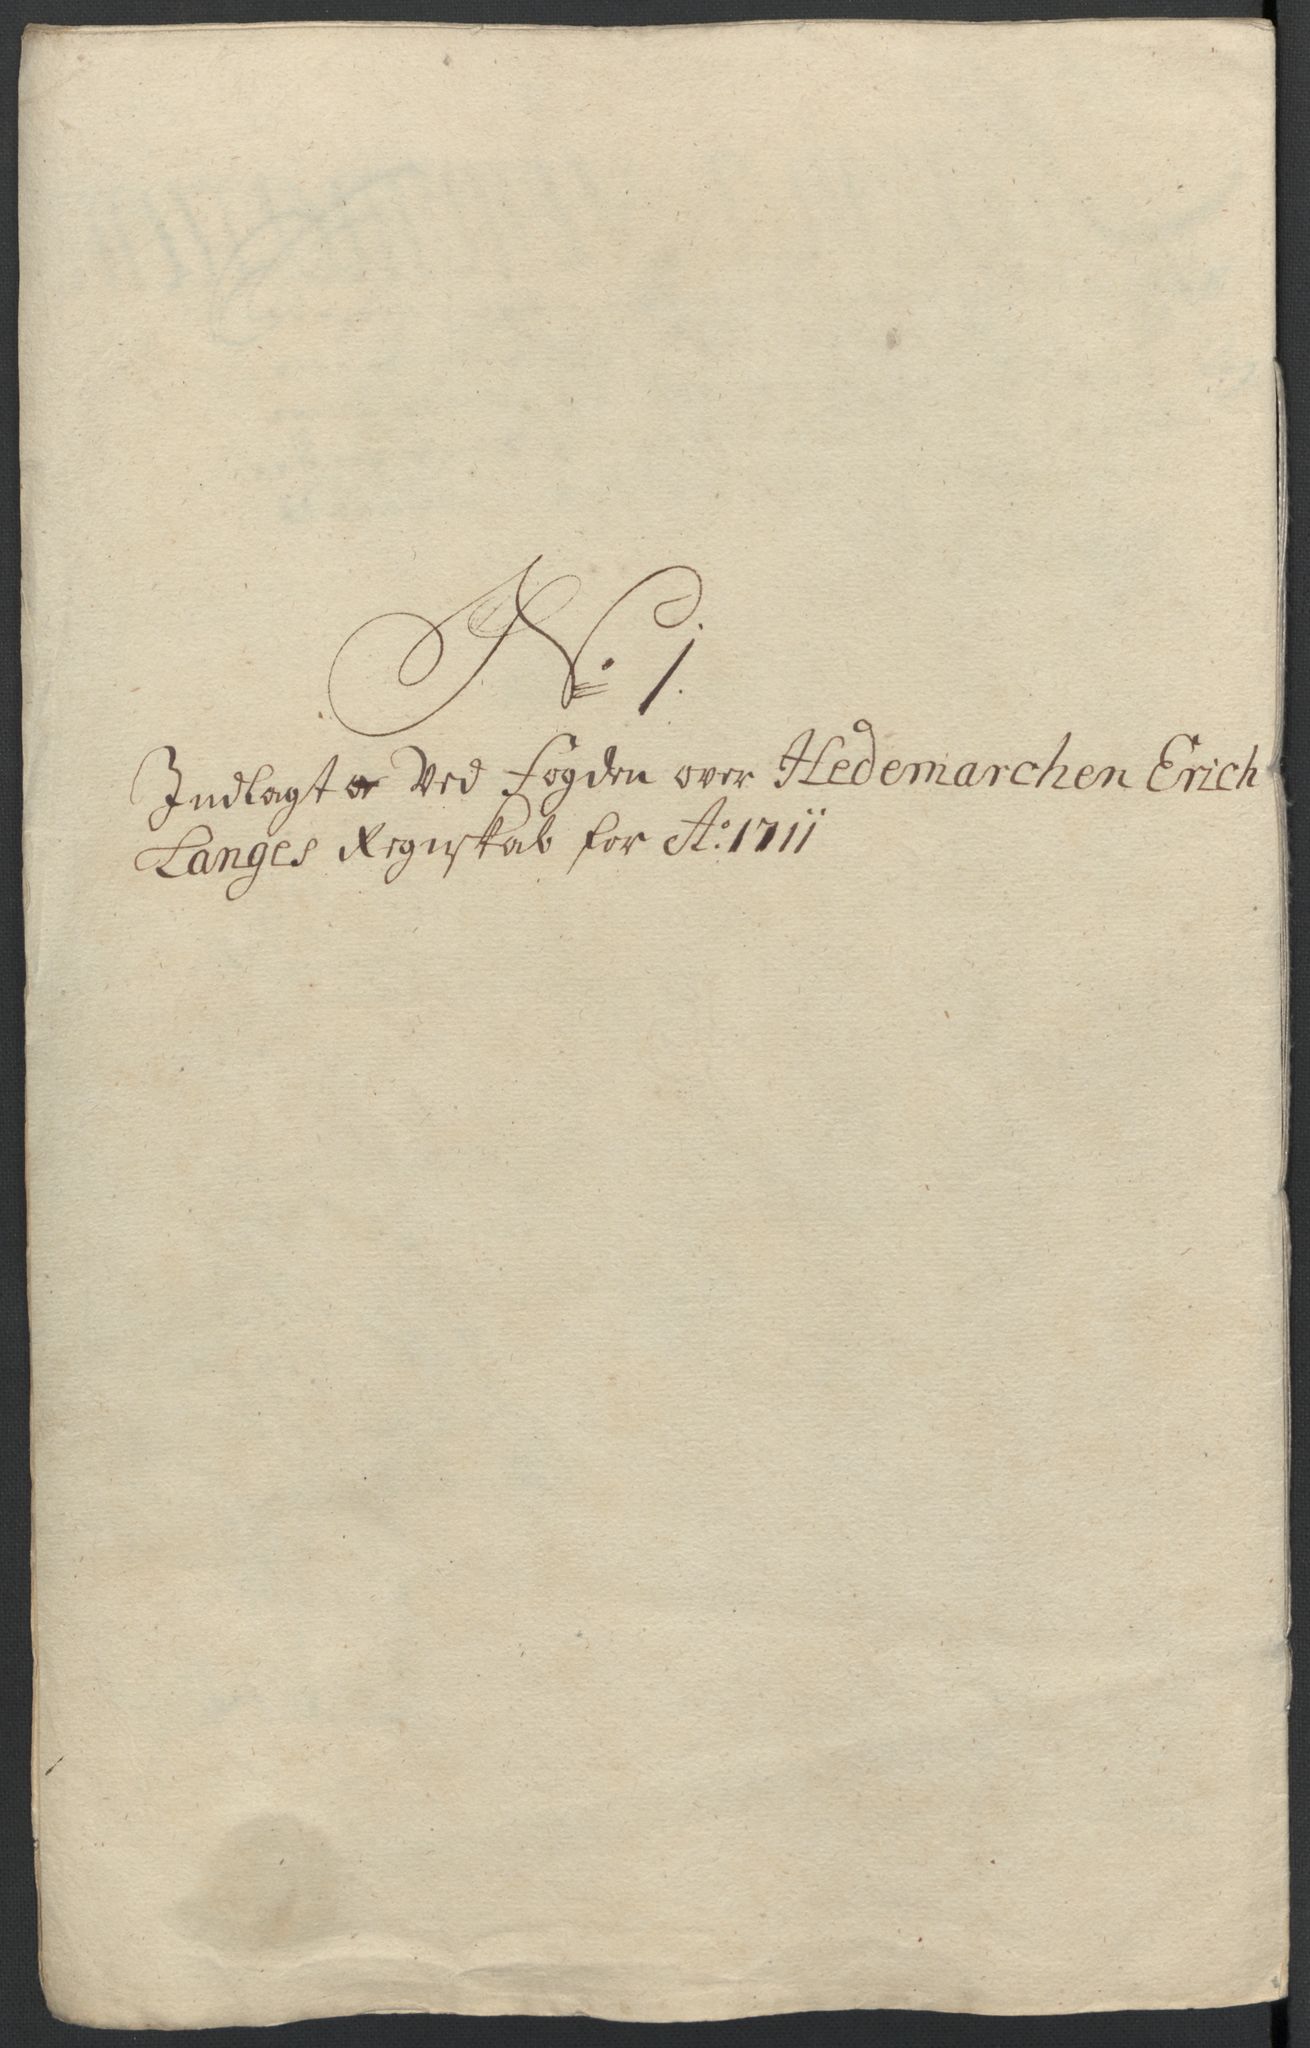 N: 1.
Indlagt Ved Fogden over Hedemarchen Erich
Langes Regnskab for A:o 1711